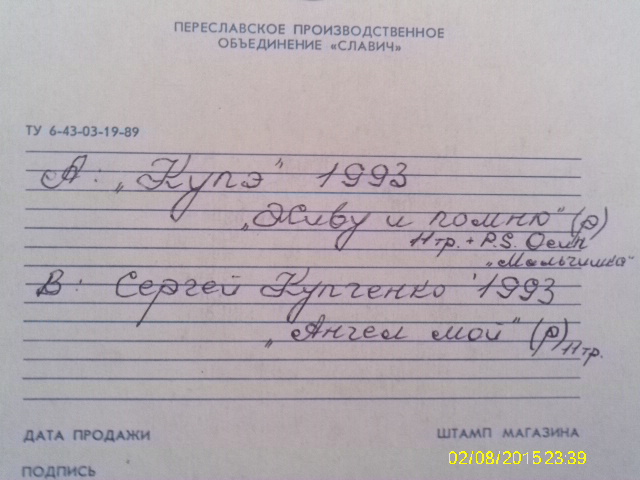 ПЕРЕСЛАВСКОЕ ПРОИЗВОДСТВЕННОЕ
ОБЪЕДИНЕНИЕ «СЛАВИЧ»
ТУ 6-43-03-19-89
А: „Купэ" 1993
„Живу и помню" (р)
11тр. + P.S. Осин
„Мальчишка"
В: Сергей Купченко '1993
„Ангел мой" (р) 11тр.
ДАТА ПРОДАЖИ ШТАМП МАГАЗИНА
ПОДПИСЬ
02/08/2015 23:39